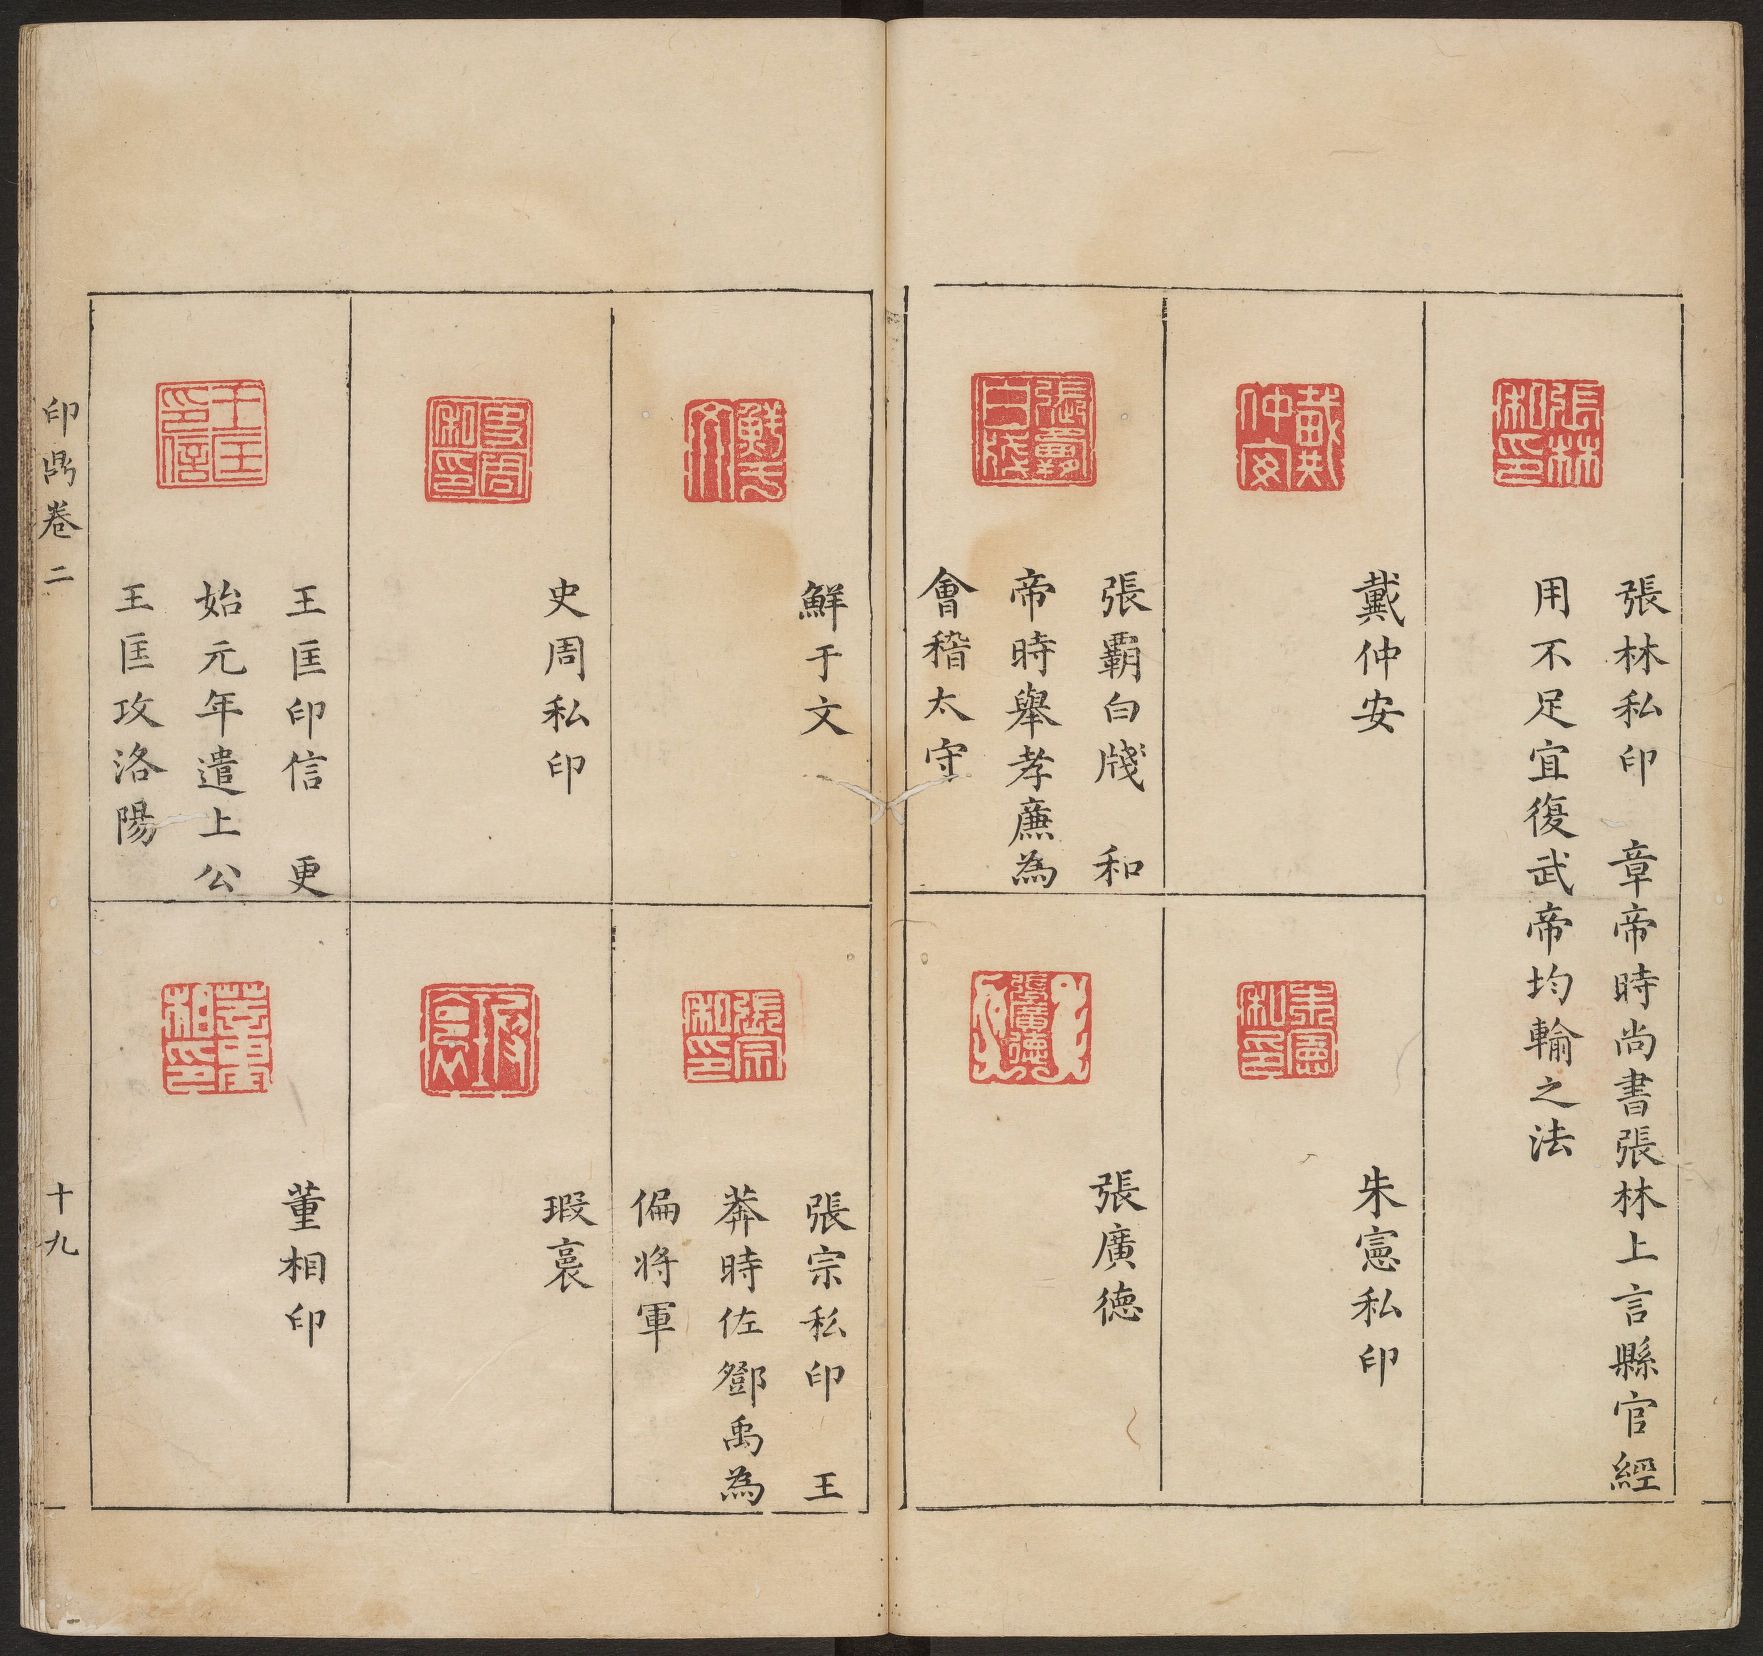 張林私印　章帝時尚書張林上言縣官經
用不足宜復武帝均輸之法
戴仲安
朱憲私印
張霸白牋　和
帝時舉孝廉為
會稽太守
張廣德
鮮于文
張宗私印　王
莽時佐鄧禹為
偏將軍
史周私印
瑕裒
王匡印信　更
始元年遣上公
王匡攻洛陽
董相印
印鼎卷二
十九